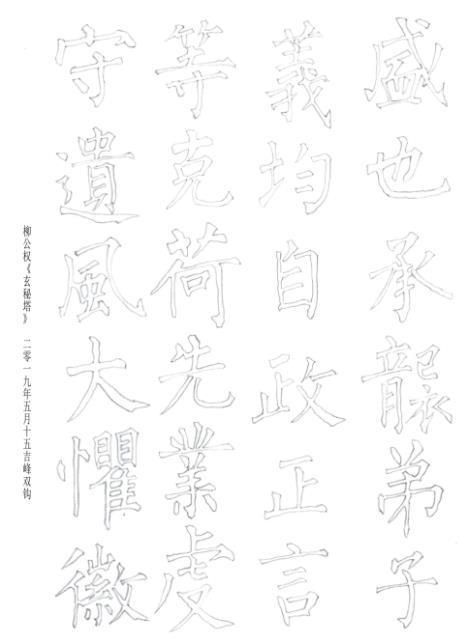 盛也承襲弟子
義均自政正言
等克荷先業虔
守遺風大懼徽
柳公权《玄秘塔》 二零一九年五月十五吉峰双钩